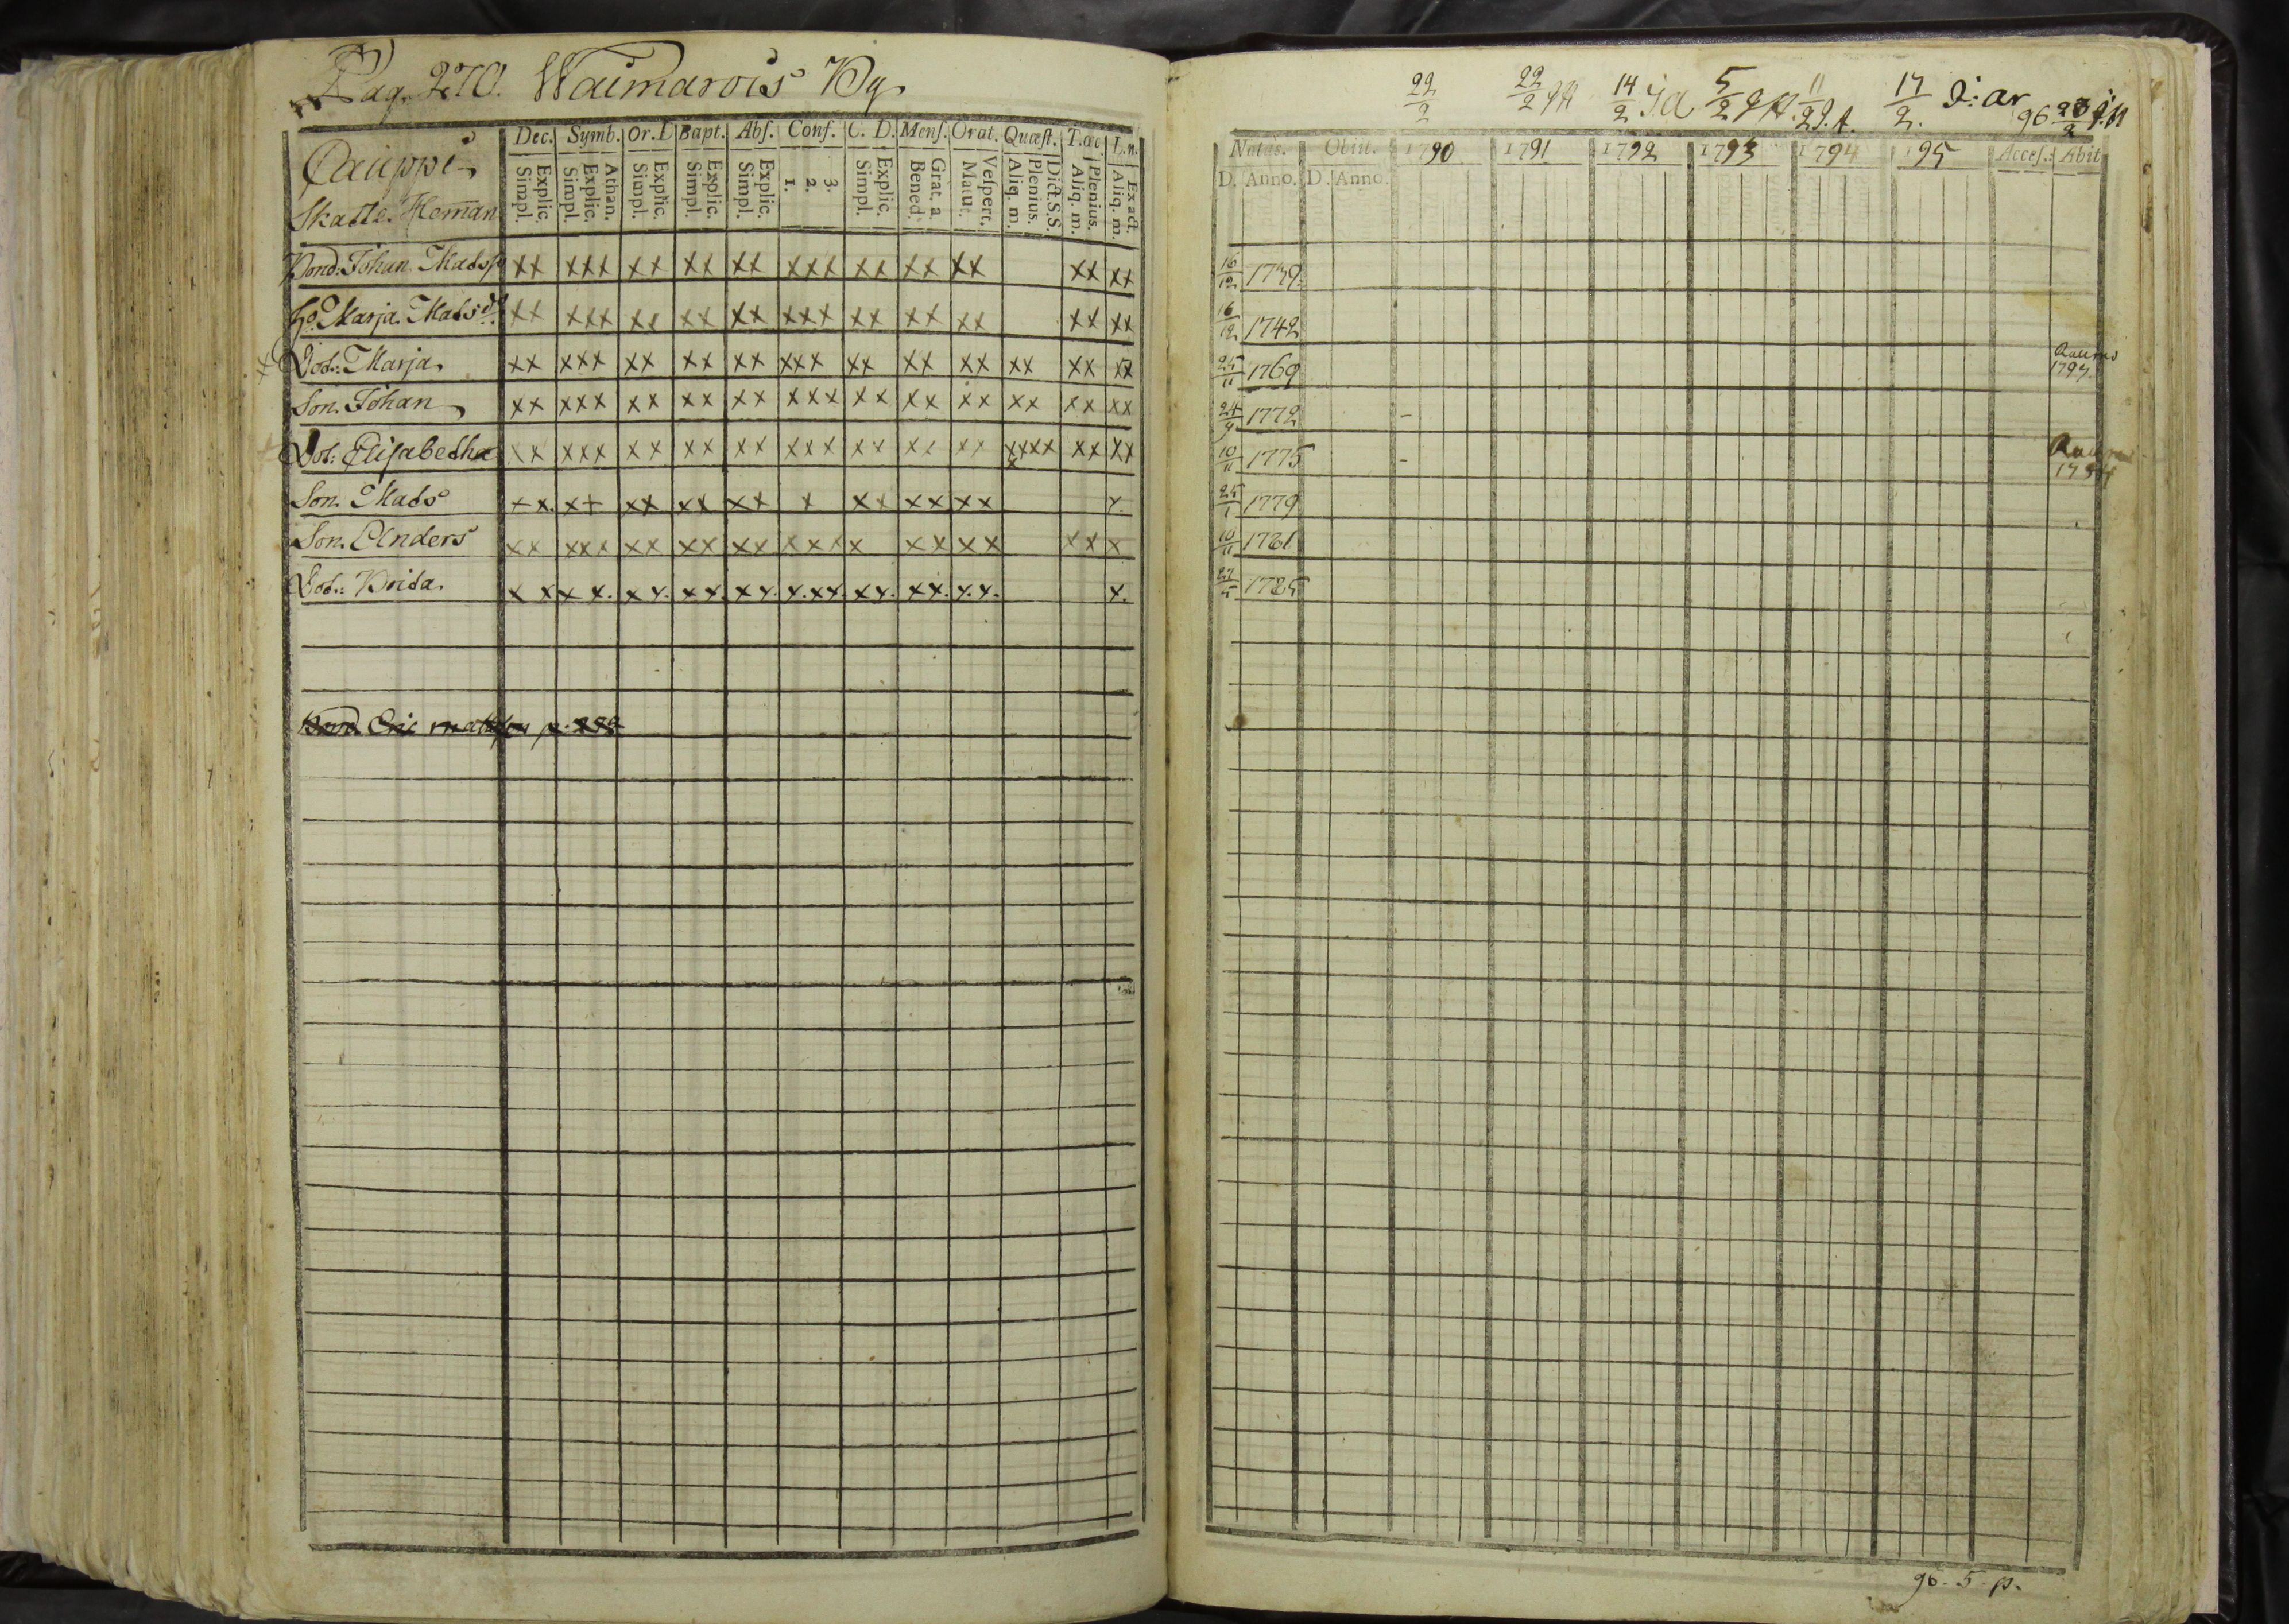 Pag. 270. Waimarois By
Dec. Symb. Or. D Bapt. Abs. Conf. C. D. Mens. Orat. Quæst. T. œc. L. n.
Explic. Simpl. Athan. Explic. Simpl. Explic. Simpl. Explic. Simpl. Explic. Simpl. 3. 2. 1. Explic. Simpl. Grat. a Bened. Vespert. Matut. Dict. S. S. Plenius. Aliq. m. Plenius. Aliq. m. Exact. Aliq. m.
Skatte. Heman
Bond: Johan Madss xx xxx xx xx xx xxx xx xx xx xx xx
ho Marja Matsdr xx xxx xx xx xx xxx xx xx xx xx xx
Dot: Marja xx xxx xx xx xx xxx xx xx xx xx xx xx
Son. Johan xx xxx xx xx xx xxx xx xx xx xx xx xx
Dot: Elisabetha xx xxx xx xx xx xxx xx xx xx xxxxx xx xx
Son. Mads xx x+ xx xx xx x xx xx xx x
Son. Anders xx xxx xx xx xx xxx x xx xx xx x
Dot: Brita x x x x. x x. x x. x x. x. xx. x x. x x. x. x. x.
22/2 22/2 14/2 5/2 11/2 17/2. 96 23/2
Natus. Obiit. 1790 1791 1792 1793 1794 195 Acces. Abit
D. Anno. D. Anno.
16/12 1739.
16/12 1742
25/11 1769 Raumo 1797.
24/9 1772 -
10/11 1775 -
25/1 1779
10/11 1781
27/5 1785
96. 5. p.